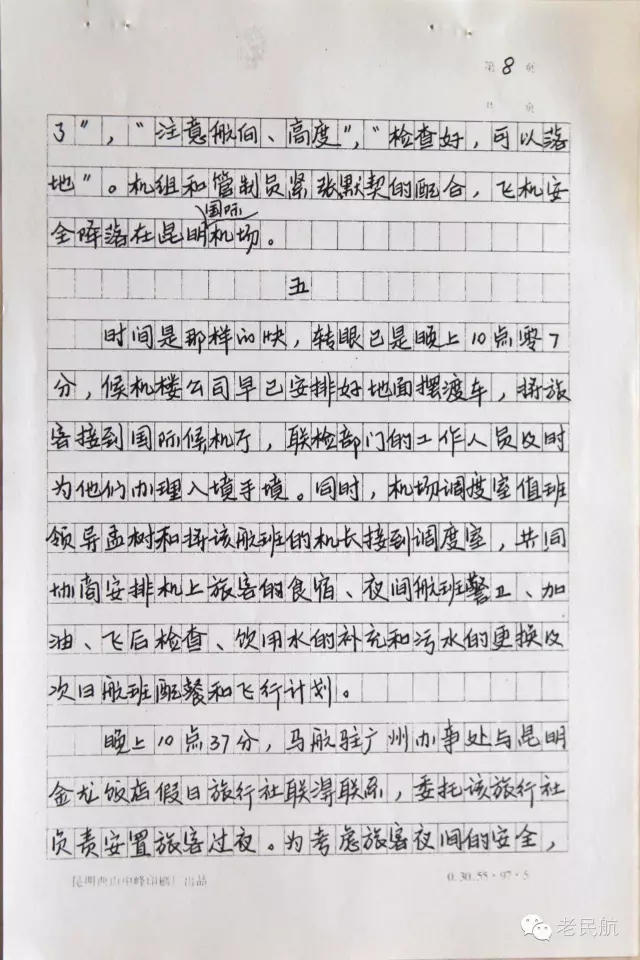 第8页
共 页
了”，“注意航向、高度”，“检查好，可以落
地”。机组和管制员紧张默契的配合，飞机安
国际
全降落在昆明机场。
五
时间是那样的快，转眼已是晚上10点零7
分，候机楼公司早已安排好地面摆渡车，将旅
客接到国际候机厅，联检部门的工作人员及时
为他们办理入境手境。同时，机场调度室值班
领导孟树和将该航班的机长接到调度室，共同
协商安排机上旅客的食宿、夜间航班警卫、加
油、飞后检查、饮用水的补充和污水的更换及
次日航班配餐和飞行计划。
晚上10点37分，马航驻广州办事处与昆明
金龙饭店假日旅行社联得联系，委托该旅行社
负责安置旅客过夜。为考虑旅客夜间的安全，
出品
0.30.55·97·5
老民航